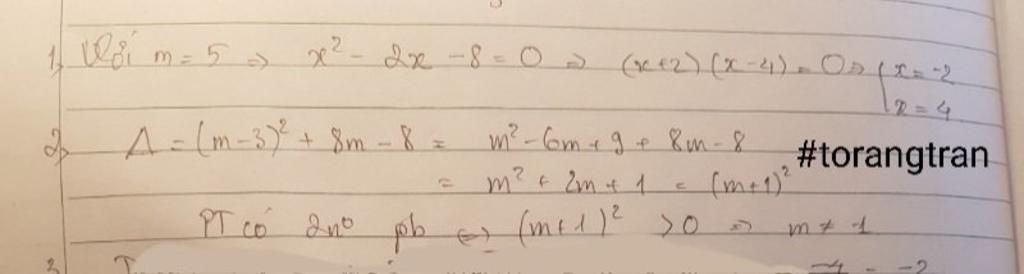 1, Với m = 5 => x² - 2x - 8 = 0 => (x+2)(x-4) = 0 => { x = -2
x = 4
2, Δ = (m-3)² + 8m - 8 = m² - 6m + 9 + 8m - 8
#torangtran
= m² + 2m + 1 = (m+1)²
PT có 2n⁰ pb <=> (m+1)² > 0 => m ≠ 1
3 -4 = -2